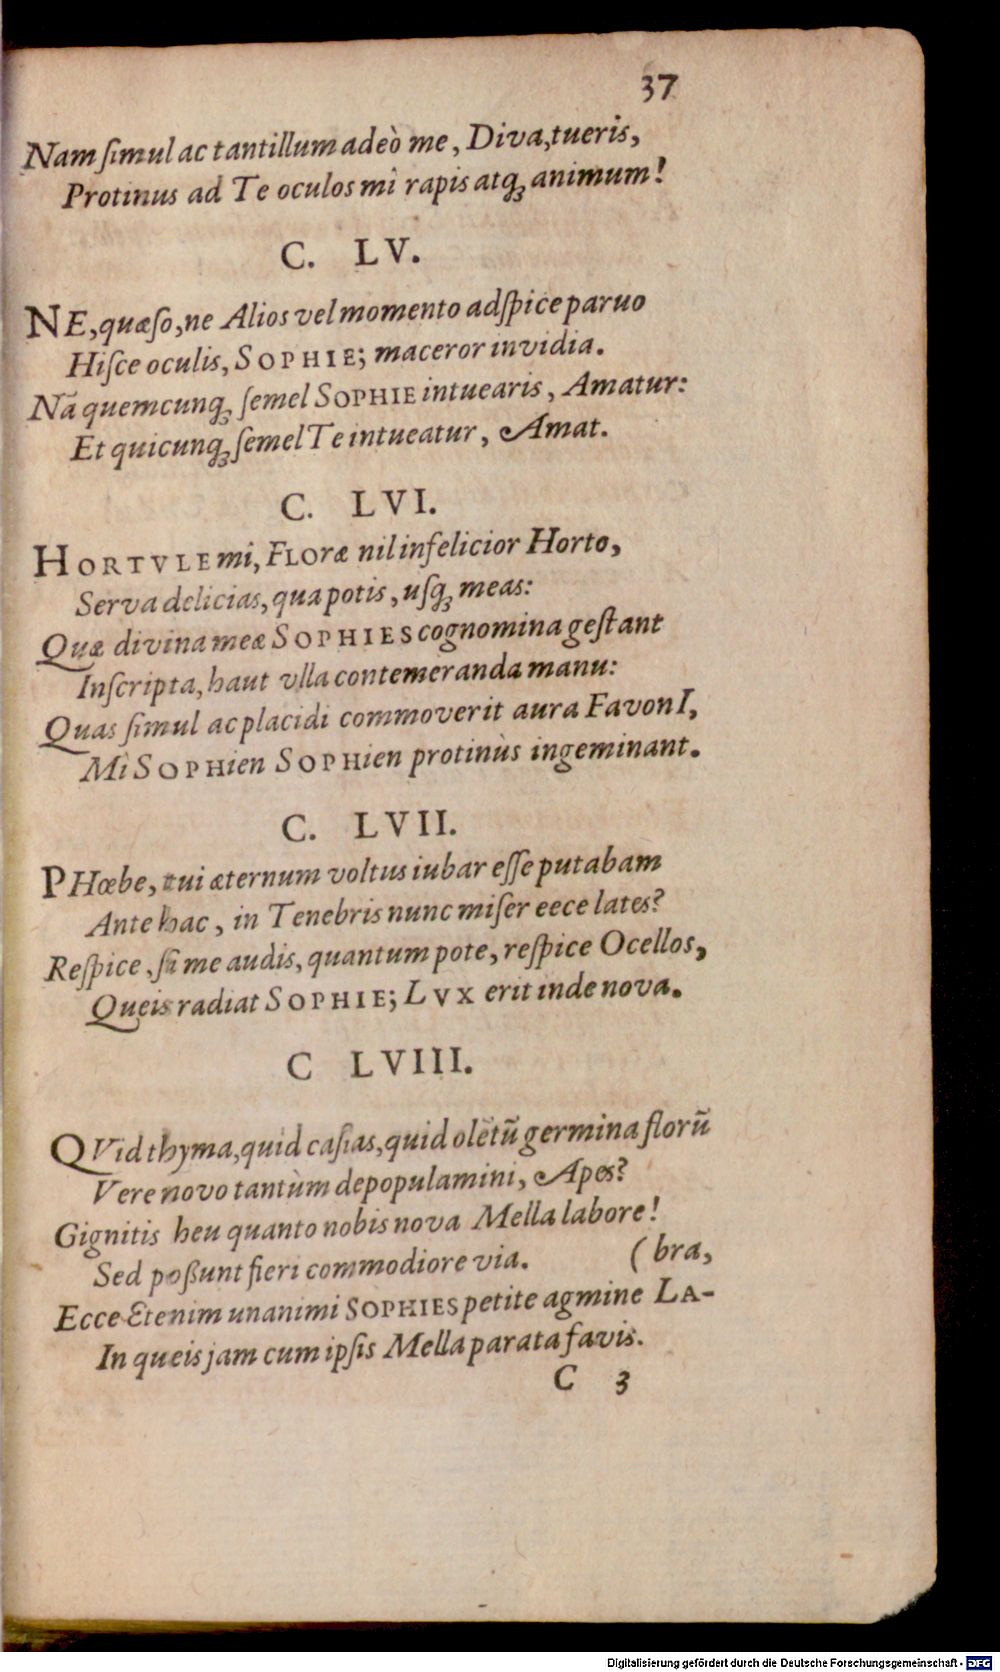 37
Nam ſimul ac tantillum adeò me, Diva, tueris,
Protinus ad Te oculos mì rapis atq; animum!
C. LV.
NE, quæſo, ne Alios vel momento adſpice paruo
Hiſce oculis, SOPHIE; maceror invidia.
Nā quemcunq; ſemel SOPHIE intuearis, Amatur:
Et quicunq; ſemel Te intueatur, Amat.
C. LVI.
HORTVLE mi, FLORæ nil infelicior Horto,
Serva delicias, qua potis, uſq; meas:
Quæ divina meæ SOPHIES cognomina geſtant
Inſcripta, haut vlla contemeranda manu:
Quas ſimul ac placidi commoverit aura FavonI,
Mì SOPHien SOPHien protinùs ingeminant.
C. LVII.
PHœbe, tui æternum voltus iubar eſſe putabam
Ante hac, in Tenebris nunc miſer eece lates?
Reſpice, ſi me audis, quantum pote, reſpice Ocellos,
Queis radiat SOPHIE; LVX erit inde nova.
C LVIII.
QVid thyma, quid caſias, quid olētū germina florū
Vere novo tantùm depopulamini, Apes?
Gignitis heu quanto nobis nova Mella labore!
Sed poßunt fieri commodiore via. (bra,
Ecce Etenim unanimi SOPHIES petite agmine LA-
In queis jam cum ipſis Mella parata favis.
C 3
Digitalisierung gefördert durch die Deutsche Forschungsgemeinschaft - DFG